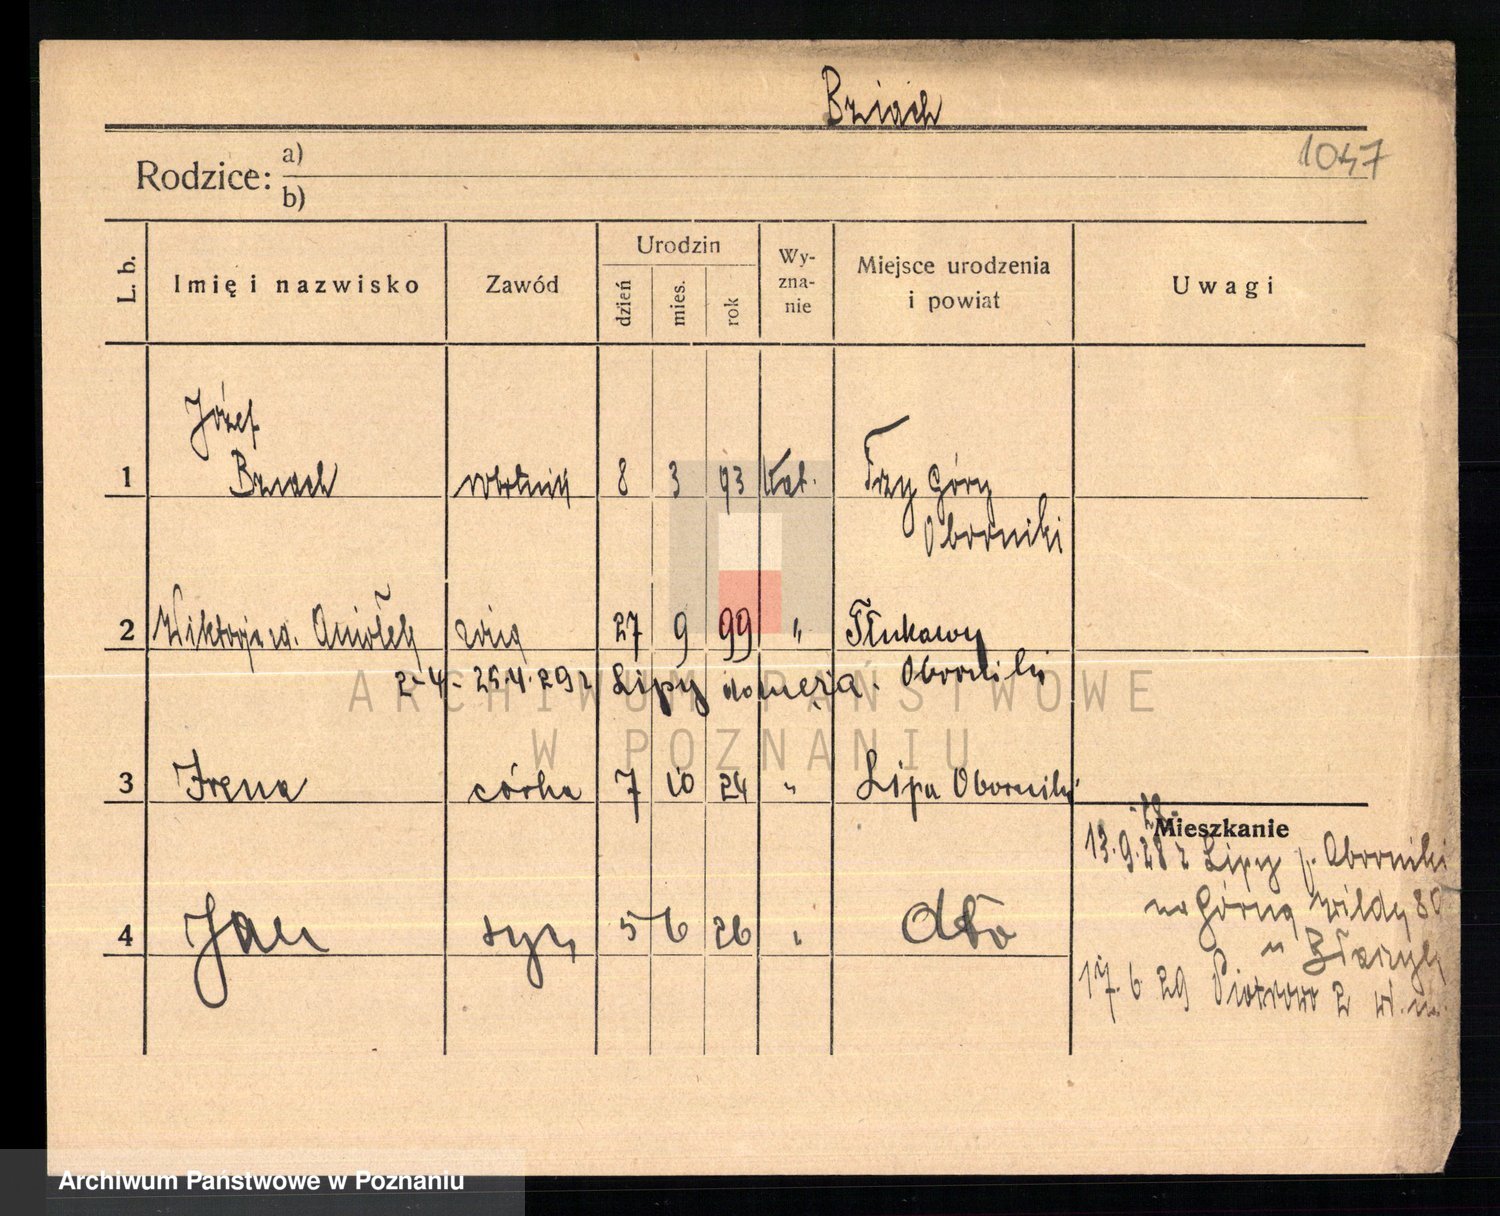 Bziach
1047
Rodzice: a)
b)
L. b.
Imię i nazwisko
Zawód
Urodzin
dzień
mies.
rok
Wy-
zna-
nie
Miejsce urodzenia
i powiat
Uwagi
Józef
1 Bziach robotnik 8 3 93 kat. Trzy Góry
Oborniki
2 Wiktorja ur. Aniołek żona 27 9 99 " Tłukawy
2-4- 25.4.29 z Lipy do męża. Oborniki
3 Irena córka 7 10 24 " Lipa Oborniki
Mieszkanie
13.9.28 z Lipy p. Oborniki
na Górną Wildę 80
4 Jan syn 5 6 26 " dto
u
17.6 29 Piotrowo 2 w. m.
ARCHIWUM PAŃSTWOWE
W POZNANIU
Archiwum Państwowe w Poznaniu